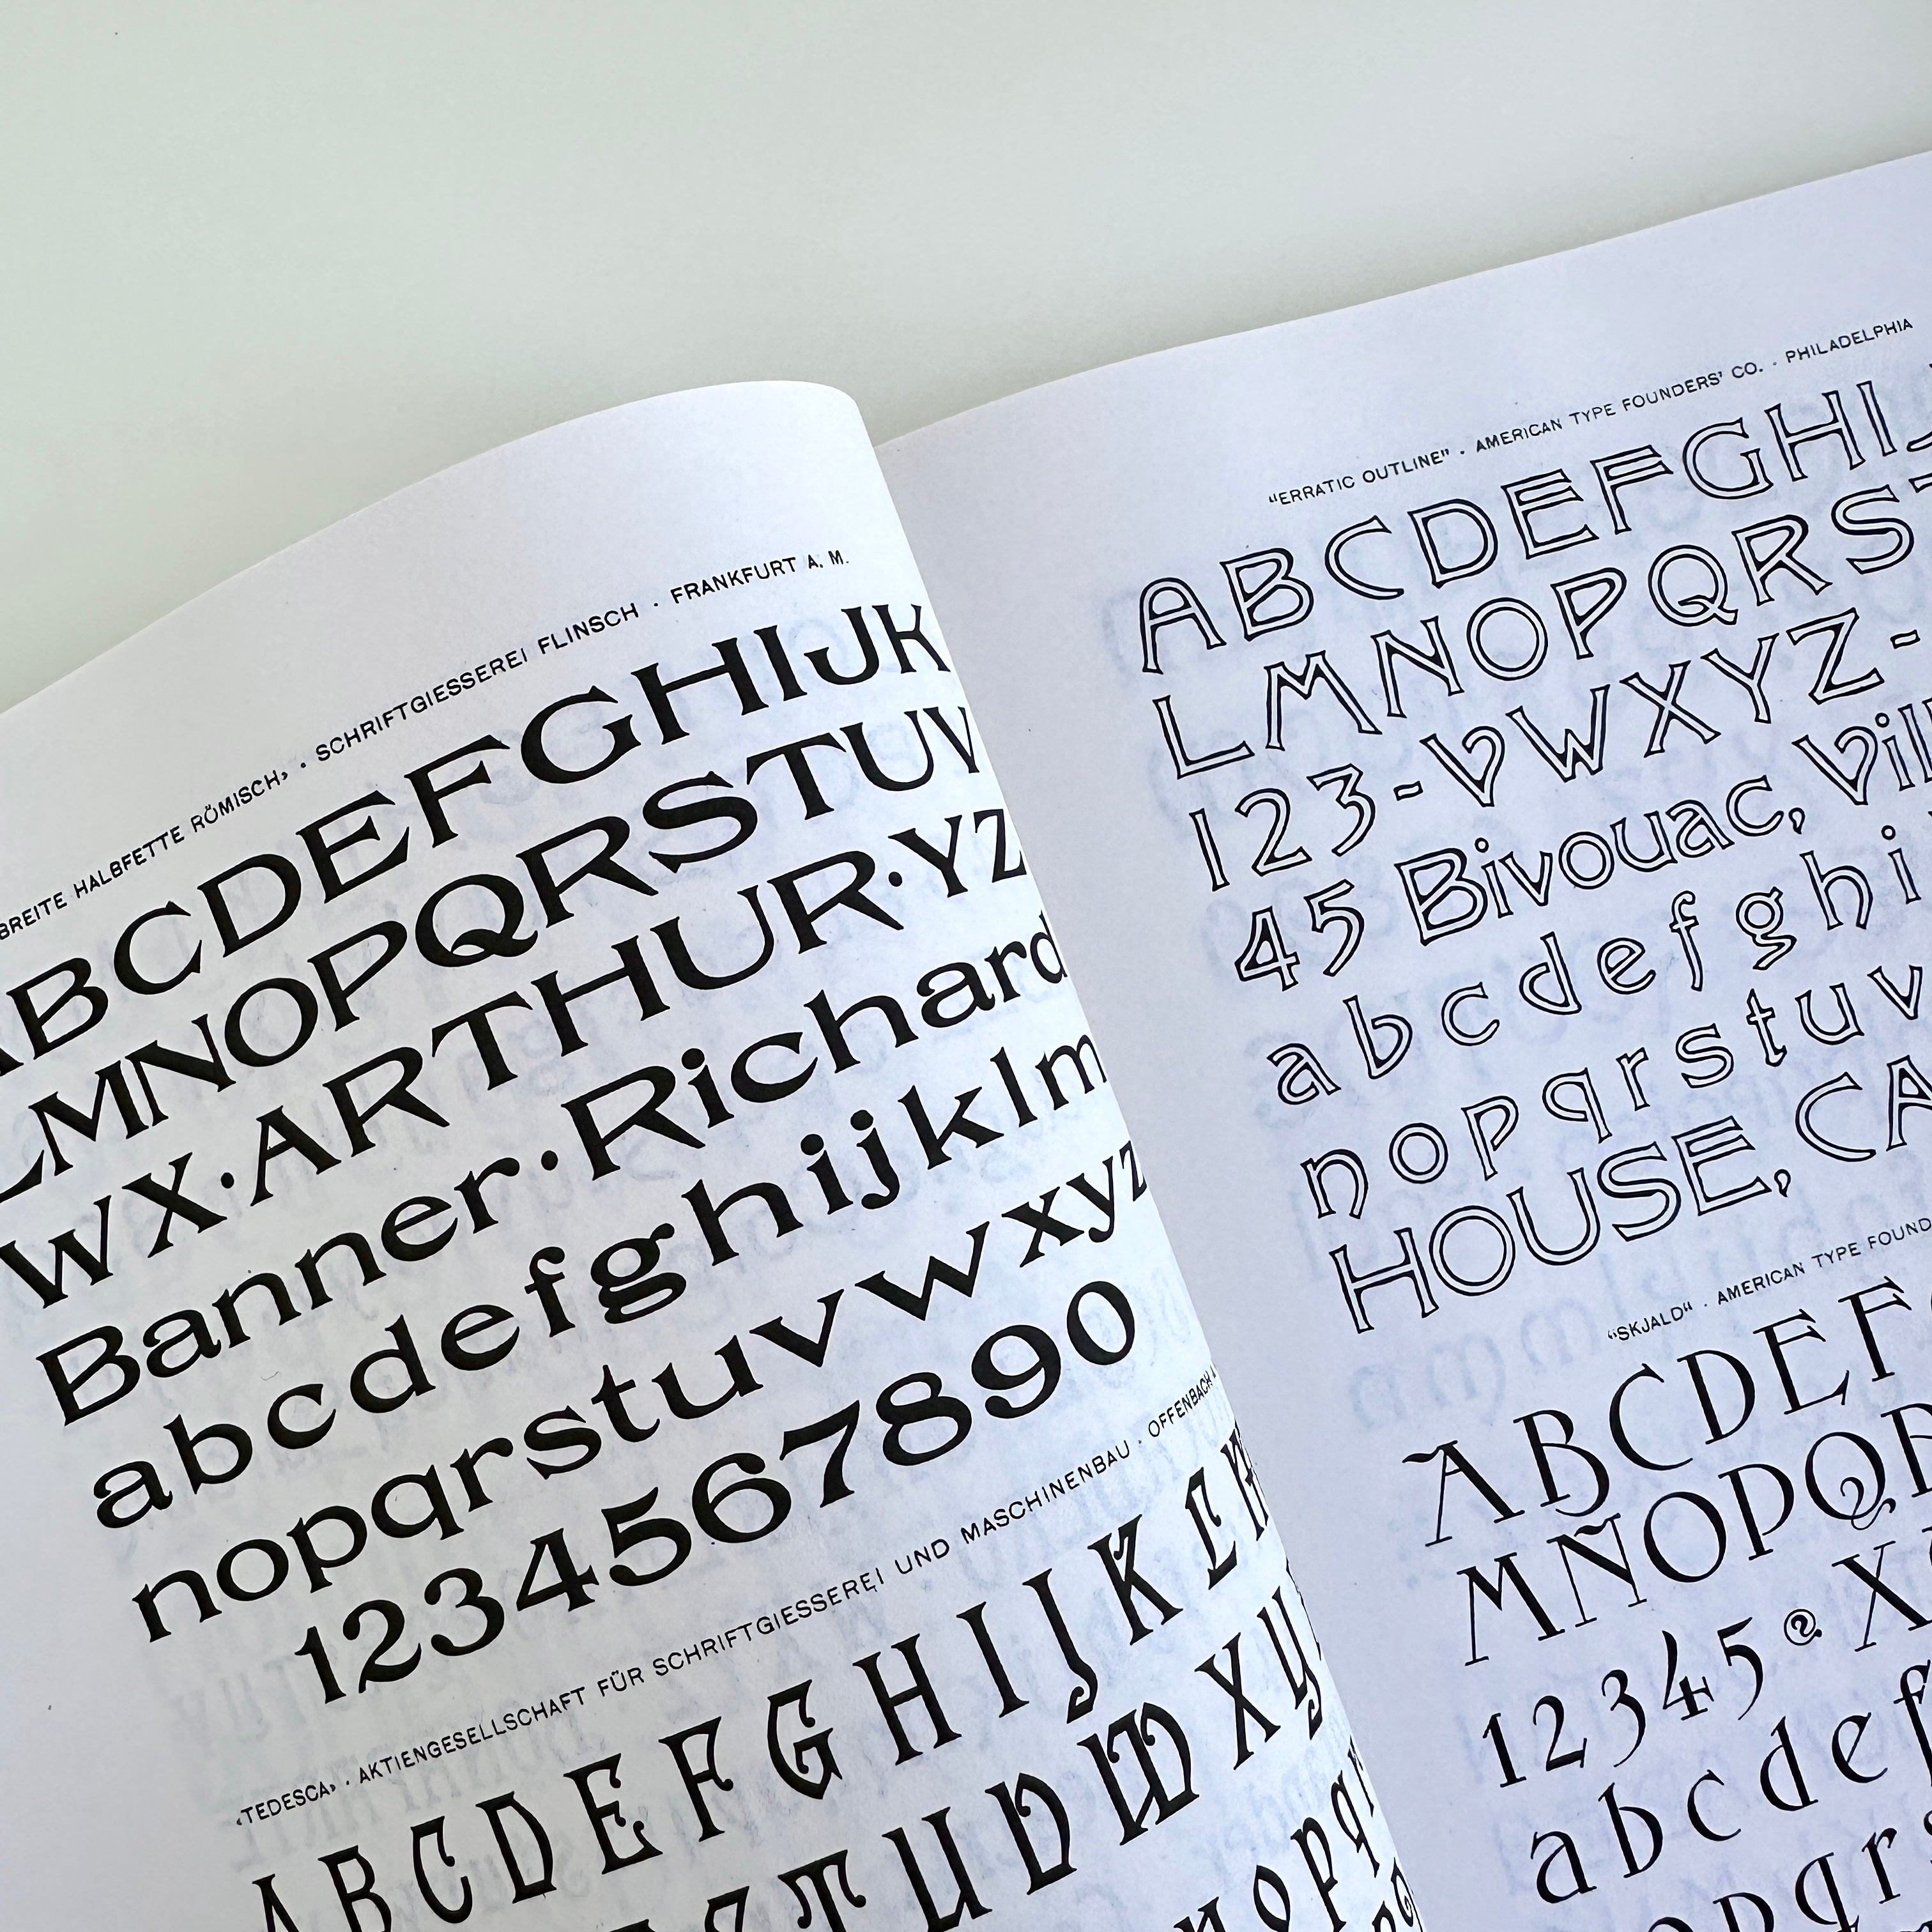 BREITE HALBFETTE RÖMISCH› · SCHRIFTGIESSEREI FLINSCH · FRANKFURT A. M.
ABCDEFGHIJK
LMNOPQRSTUV
WX·ARTHUR·YZ
Banner·Richard
abcdefghijklm
nopqrstuvwxyz
1234567890
‹TEDESCA› · AKTIENGESELLSCHAFT FÜR SCHRIFTGIESSEREI UND MASCHINENBAU · OFFENBACH A
ABCDEFGHIJKLM
STUVWXY
nopq
"ERRATIC OUTLINE" · AMERICAN TYPE FOUNDERS' CO. · PHILADELPHIA
ABCDEFGHIJ
LMNOPQRS
123-VWXYZ-
45 Bivouac, Vill
abcdefghi
nopqrstuv
HOUSE, CA
"SKJALD" · AMERICAN TYPE FOUND
ABCDEF
MÑOPQR
12345 & X
abcdef
opqrs